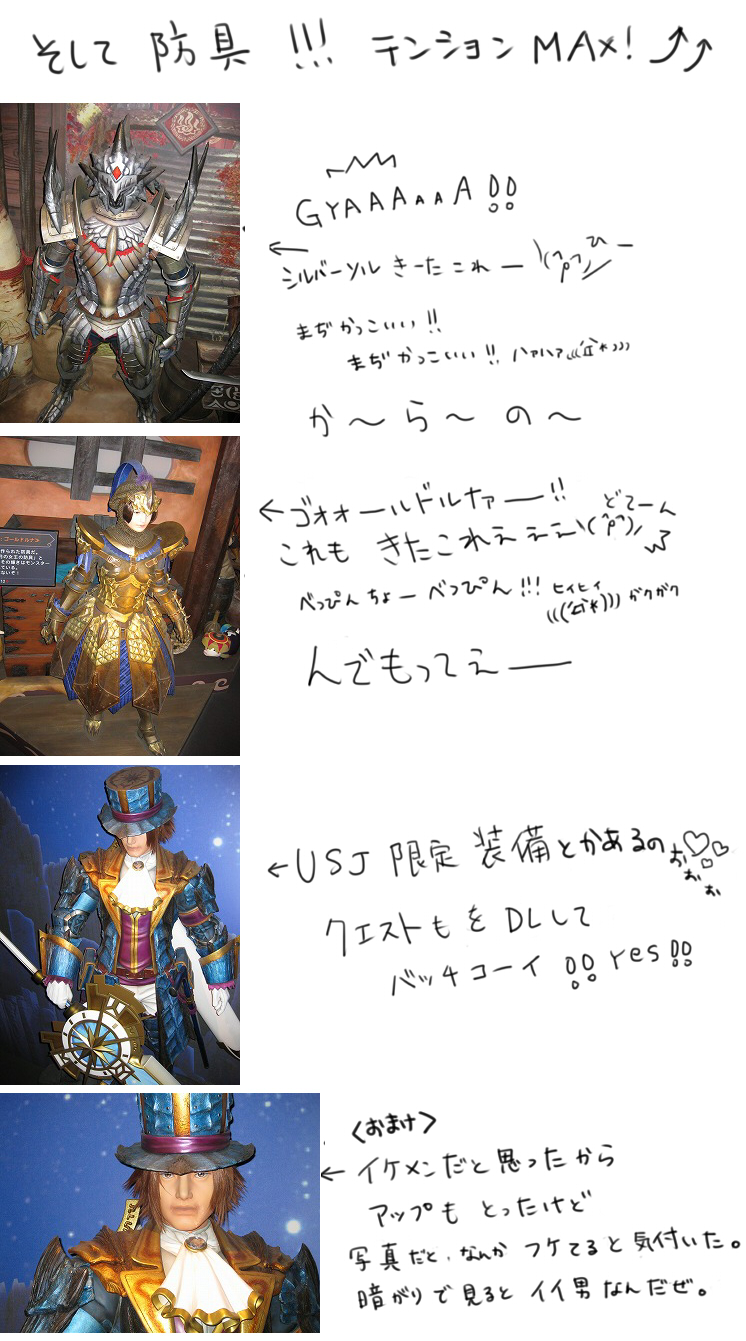 そして 防具 !!! テンション MAX! ⤴⤴
GYAAAAAA!!
← シルバーソル きーた これー \(^p^)/ ひー
まぢ かっこいい!!
まぢ かっこいい!! ハァハァ
か〜ら〜の〜
← ゴォォールドルナァー!!
どてーん
これも きたこれぇぇぇ \(^p^)/
べっぴん ちょー べっぴん!!!
ヒィヒィ
ガクガク
んでもってぇー
ゴールドルナ≫
作られた防具だ。
の女王の防具」と
その輝きはモンスター
ている。
ないぞ!
← USJ 限定 装備とかあるの
ぉぉぉ
クエストも をDLして
バッチコーイ!! Yes!!
<おまけ>
← イケメンだと思ったから
アップも とったけど
写真だと、なんか フケてると気付いた。
暗がりで見ると イイ男なんだぜ。